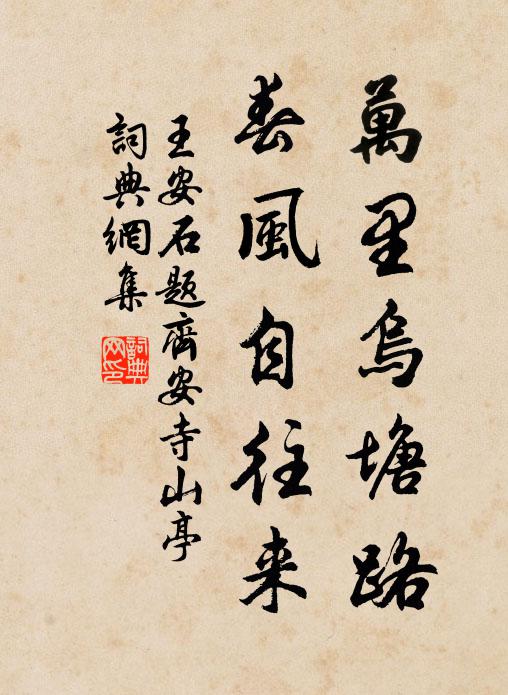 萬里烏塘路
春風自往来
王安石题齊安寺山亭
詞典網集
詞典網印